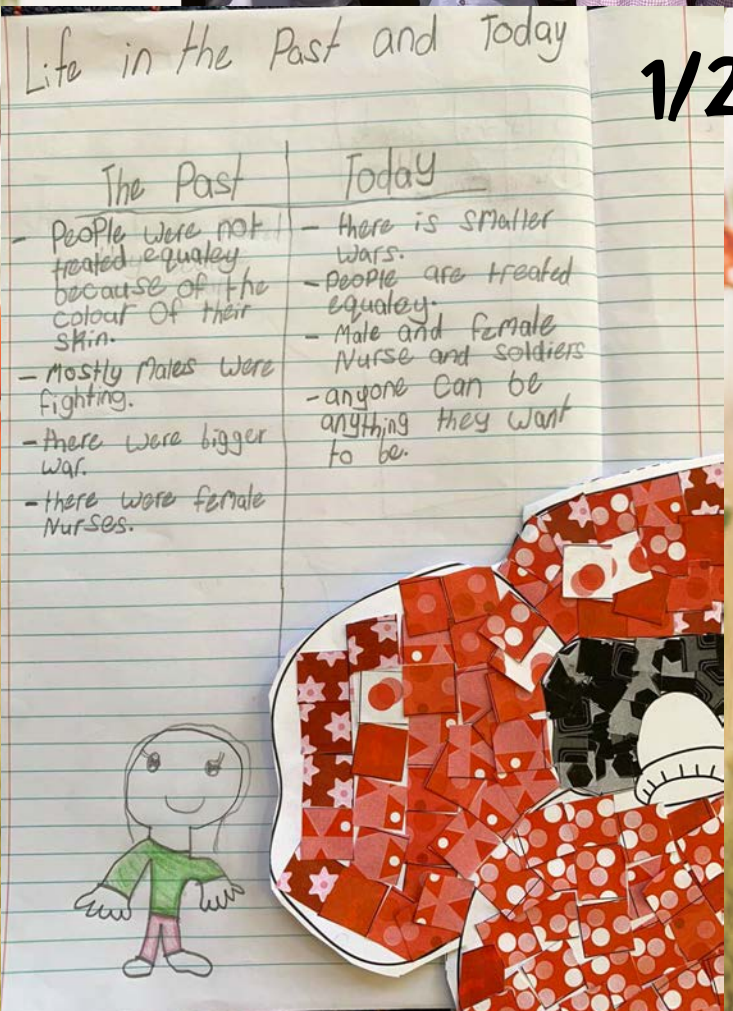 Life in the Past and Today
1/2
The Past
- People were not
treated equaley
because of the
colour of their
skin.
- Mostly Males were
fighting.
- there were bigger
war.
- there were female
Nurses.
Today
- there is smaller
wars.
- People are treated
equaley.
- Male and female
Nurse and soldiers
- anyone can be
anything they want
to be.